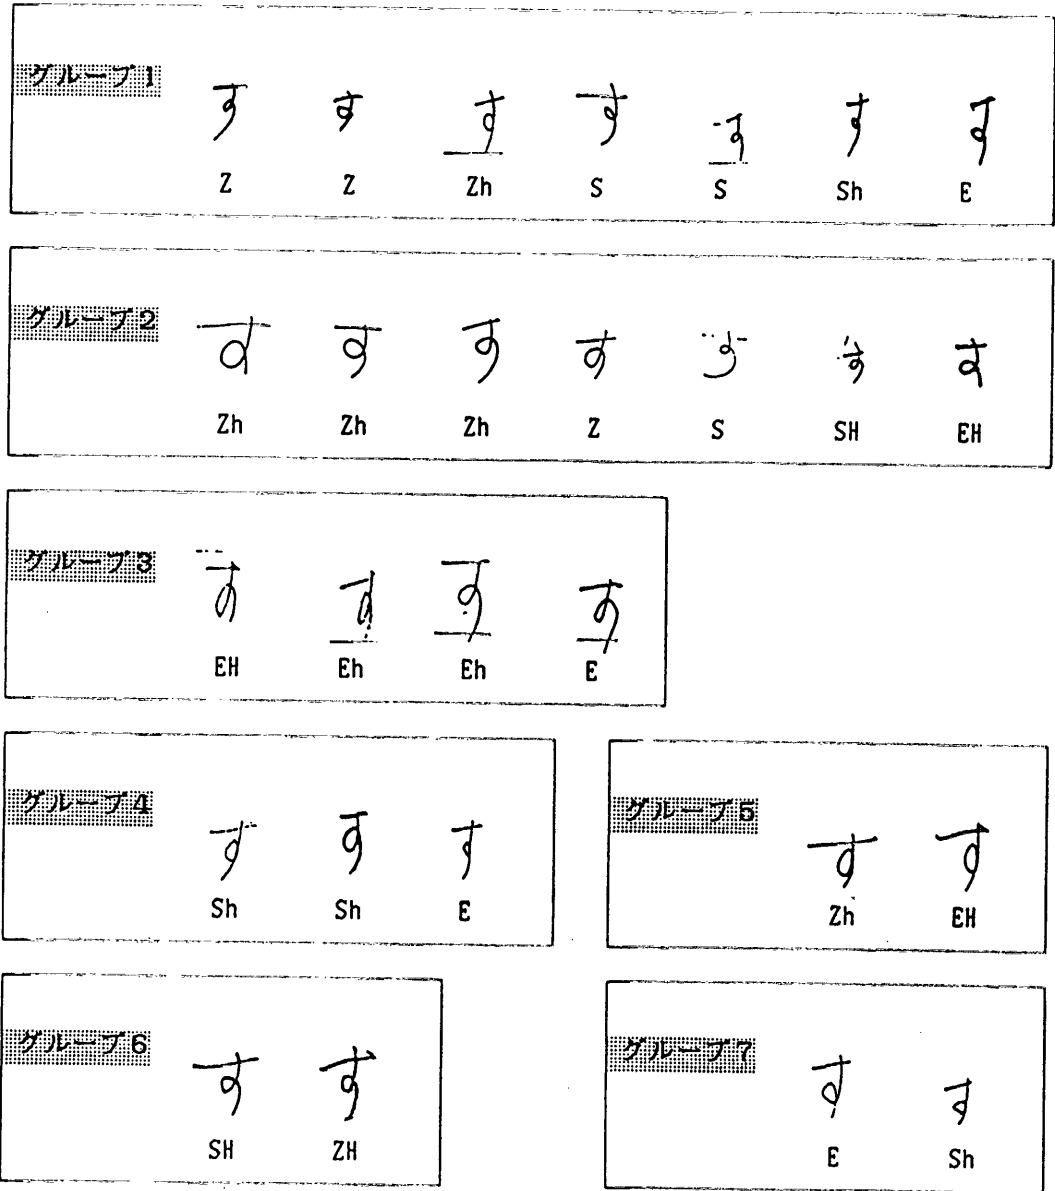 グループ1
す す す す す す す
Z Z Zh S S Sh E
グループ2
す す す す す す す
Zh Zh Zh Z S SH EH
グループ3
す す す す
EH Eh Eh E
グループ4
す す す
Sh Sh E
グループ5
す す
Zh EH
グループ6
す す
SH ZH
グループ7
す す
E Sh